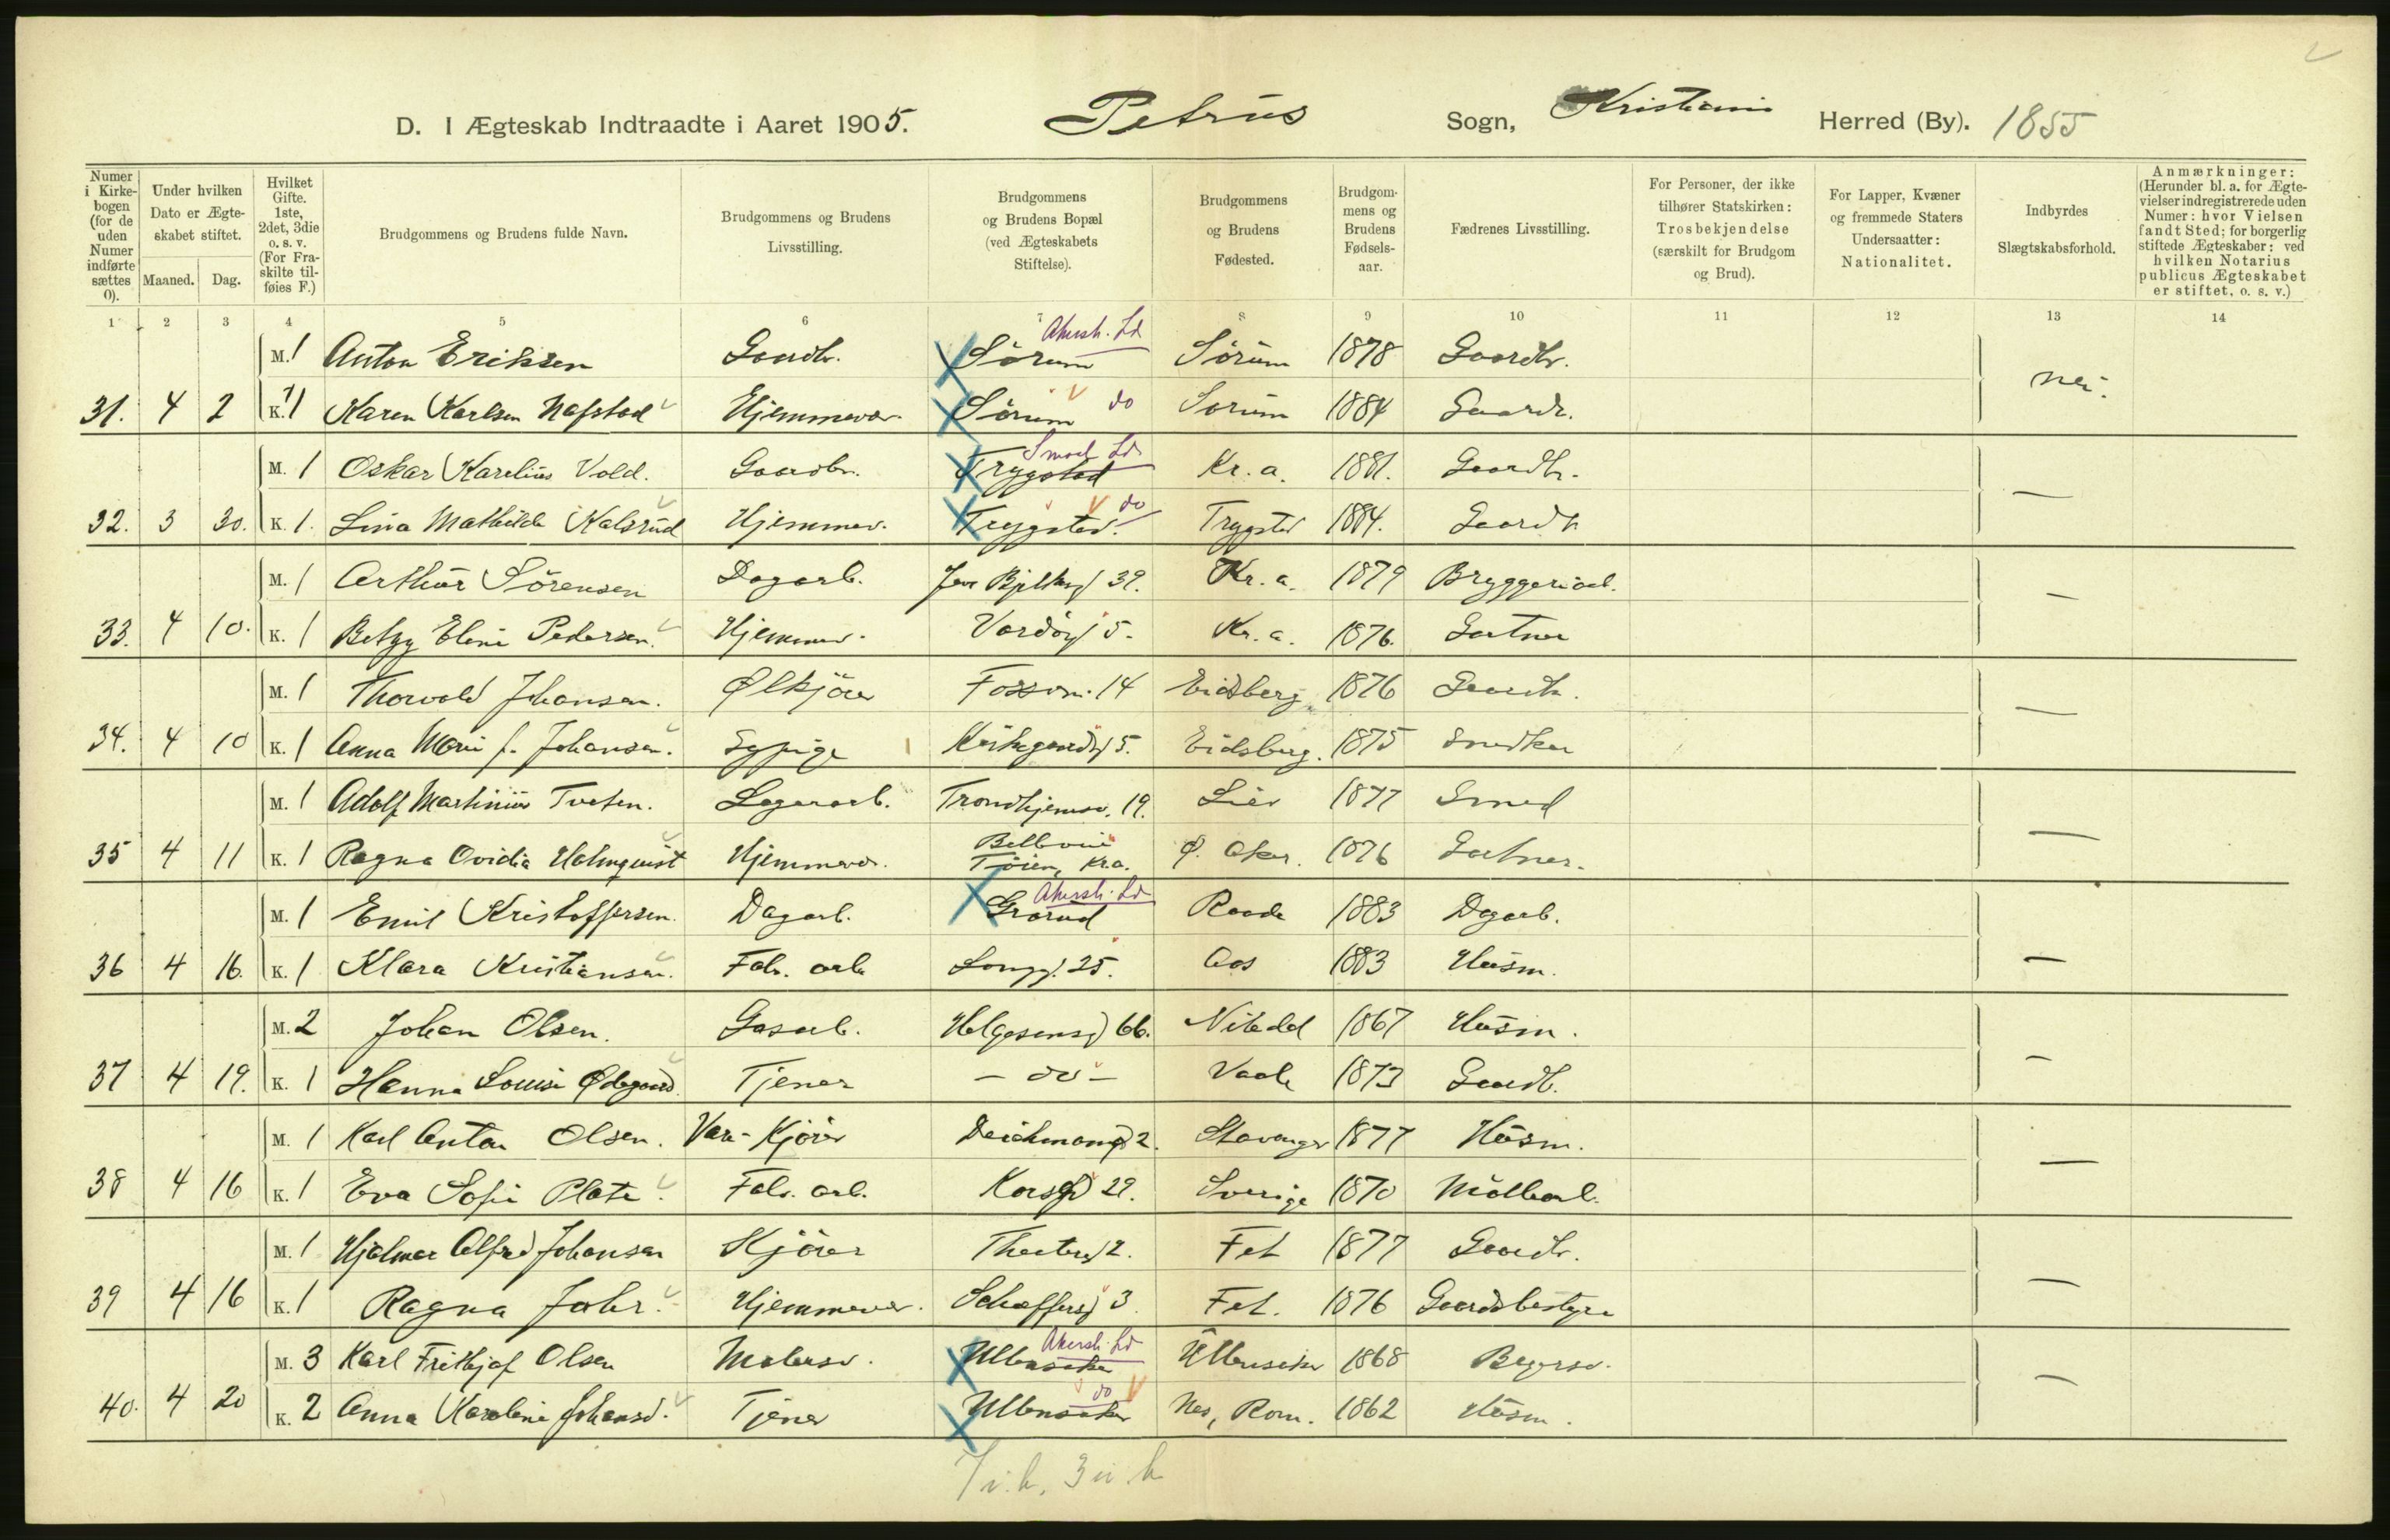 D. I Ægteskab Indtraadte i Aaret 1905. Petrus Sogn, Kristiania Herred (By). 1855
Numer i Kirkebogen (for de uden Numer indførte sættes 0).
Under hvilken Dato er Ægteskabet stiftet.
Maaned. Dag.
Hvilket Gifte. 1ste, 2det, 3die o. s. v. (For Fraskilte tilføies F.)
Brudgommens og Brudens fulde Navn.
Brudgommens og Brudens Livsstilling.
Brudgommens og Brudens Bopæl (ved Ægteskabets Stiftelse).
Brudgommens og Brudens Fødested.
Brudgommens og Brudens Fødselsaar.
Fædrenes Livsstilling.
For Personer, der ikke tilhører Statskirken: Trosbekjendelse (særskilt for Brudgom og Brud).
For Lapper, Kvæner og fremmede Staters Undersaatter: Nationalitet.
Indbyrdes Slægtskabsforhold.
Anmærkninger: (Herunder bl. a. for Ægtevielser indregistrerede uden Numer: hvor Vielsen fandt Sted; for borgerlig stiftede Ægteskaber: ved hvilken Notarius publicus Ægteskabet er stiftet, o. s. v.)
1 2 3 4 5 6 7 8 9 10 11 12 13 14
Akersh. Ld
M. 1 Anton Eriksen Gaardbr. Sörum Sörum 1878 Gaardbr.
nei.
31. 4 2 K. 1 Karen Karlsen Hafstad Hjemmevær. Sörum do Sorum 1884 Gaardb.
Smaal Ld.
M. 1 Oskar Karelius Vold. Gaardbr. Trygstad Kr. a. 1881. Gaardbr. —
32. 3 30. K. 1. Lina Mathilde Kalsrud Hjemmev. Trygstad. do Trygstad 1884. Gaardb
M. 1 Arthur Sörensen Dagarb. Jens Bjelkesg 39. Kr. a. 1879 Bryggeriarb. —
33. 4 10. K. 1 Betzy Eline Pedersen. Hjemmev. Vardög 5. Kr. a. 1876. Gartner
M. 1 Thorvald Johansen. Ølkjörer Fossv. 14 Eidsberg 1876 Gaardb. —
34. 4 10 K. 1 Anna Marie f. Johansen. Sypige Kirkegaardsg 5. Eidsberg. 1875 Snedker
M. 1 Adolf Martinius Tveten. Lagerarb. Trondhjemsv. 19. Lier 1877 Smed —
Bellevue
35 4 11 K. 1 Ragna Ovidia Holmquist Hjemmevær. Töien, Kr.a. Ø. Aker. 1876 Gartner.
Akersh. Ld
M. 1 Emil Kristoffersen. Dagarb. Grorud Raade 1883 Dagarb. —
36 4 16. K. 1 Klara Kristiansen. Fabr. arb Langg. 25. Aas 1883 Husm.
M. 2 Johan Olsen. Gasarb. Helgesensg 66. Nitedal 1867 Husm. —
37 4 19. K. 1 Hanna Louise Ødegaard. Tjener — do — Vaale 1873 Gaardb.
M. 1 Karl Anton Olsen. Vare-Kjörer Deichmansg 2. Stavanger 1877 Husm. —
38 4 16 K. 1 Eva Sofie Plate. Fabr. arb. Korsgd 29. Sverige 1870 Möllearb.
M. 1 Hjalmar Alfred Johansen Kjörer Theaterg 2. Fet 1877 Gaardb. —
39 4 16 K. 1 Ragna Jahr. Hjemmevær. Schaffersg 3. Fet. 1876 Gaardsbestyrer
Akersh. Ld
M. 3 Karl Frithjof Olsen Malersv. Ullensaker Ullensaker 1868 Bagersv. —
do
40. 4 20 K. 2 Anna Karoline Johansd. Tjener Ullensaker Nes, Rom. 1862 Husm.
7 i. b. 3 u. b